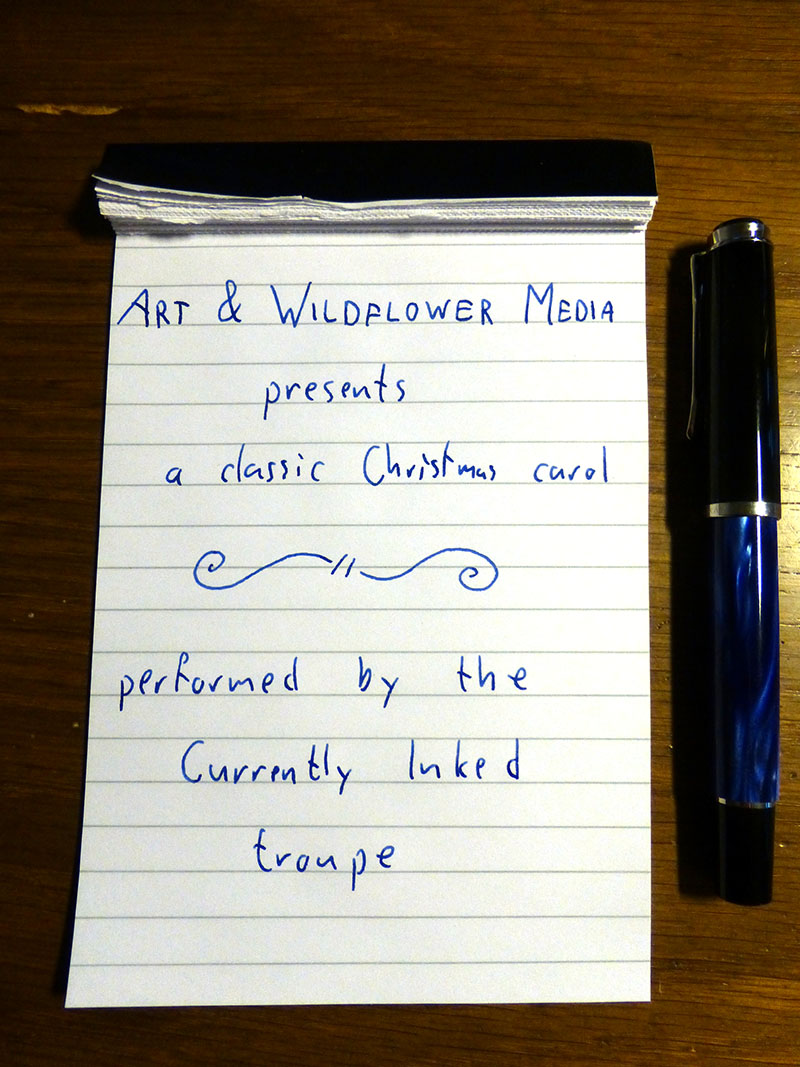 ART & WILDFLOWER MEDIA
presents
a classic Christmas carol
performed by the
Currently Inked
troupe